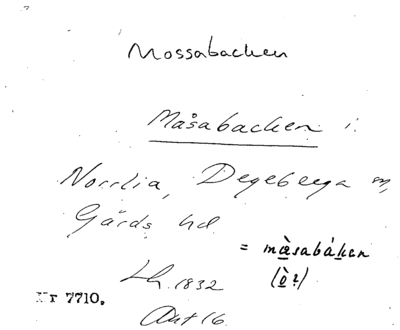 Mossabacken
Måsabacken i
Norrlia, Degeberga sn,
Gärds hd
= mæ̀sabáken
Lh. 1832 (ò?)
Nr 7710.
Akt 16